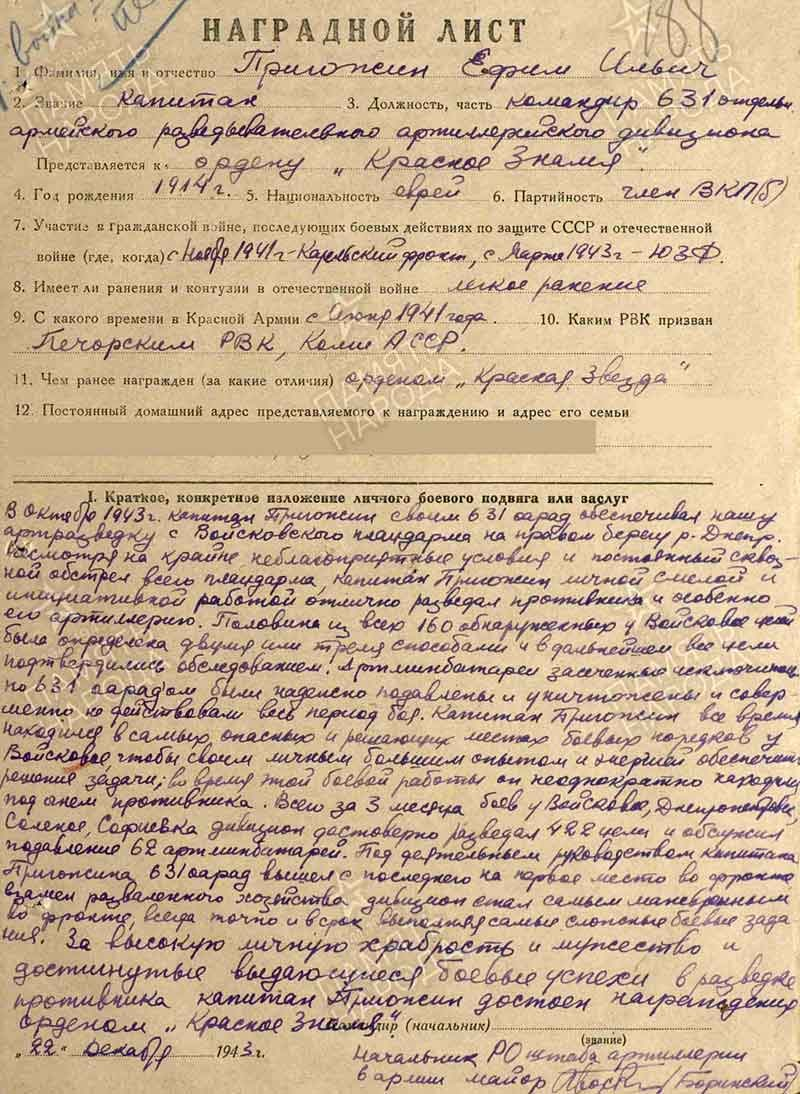 188
НАГРАДНОЙ ЛИСТ
1. Фамилия, имя и отчество Пригожин Ефим Ильич
2. Звание капитан 3. Должность, часть командир 631 отдельн.
армейского разведывательного артиллерийского дивизиона
Представляется к ордену „Красное Знамя"
4. Год рождения 1914 г. 5. Национальность еврей 6. Партийность член ВКП(б)
7. Участие в гражданской войне, последующих боевых действиях по защите СССР и отечественной
войне (где, когда) с Ноября 1941 г - Карельский фронт, с Марта 1943 г - ЮЗФ.
8. Имеет ли ранения и контузии в отечественной войне легкое ранение
9. С какого времени в Красной Армии с Июня 1941 года. 10. Каким РВК призван
Печорским РВК, Коми АССР.
11. Чем ранее награжден (за какие отличия) орденом „Красная Звезда"
12. Постоянный домашний адрес представляемого к награждению и адрес его семьи
I. Краткое, конкретное изложение личного боевого подвига или заслуг
В Октябре 1943 г. капитан Пригожин своим 631 оарад обеспечивал нашу
артразведку с Войсковского плацдарма на правом берегу р. Днепр.
Несмотря на крайне неблагоприятные условия и постоянный сквоз-
ной обстрел всего плацдарма капитан Пригожин личной смелой и
инициативной работой отлично разведал противника и особенно
его артиллерию. Половина из всех 160 обнаруженных у Войсковое целей
была определена двумя или тремя способами и в дальнейшем все цели
подтвердились обследованием. Артминбатареи засеченные исключитель-
но 631 оарадом были надежно подавлены и уничтожены и совер-
шенно не действовали весь период боя. Капитан Пригожин все время
находился в самых опасных и решающих местах боевых порядков у
Войсковое, чтобы своим личным большим опытом и энергией обеспечить
решение задачи; во время этой боевой работы он неоднократно находился
под огнем противника. Всего за 3 месяца боев у Войсковое, Днепропетровск,
Соленое, Софиевка дивизион достоверно разведал 422 цели и обслужил
подавление 62 артминбатарей. Под деятельным руководством капитана
Пригожина 631 оарад вышел с последнего на первое место во фронте
взамен разваленного хозяйства дивизион стал самым маневренным
во фронте, всегда точно и в срок выполняя самые сложные боевые зада-
ния. За высокую личную храбрость и мужество и
достигнутые выдающиеся боевые успехи в разведке
противника капитан Пригожин достоин награждения
орденом „Красное Знамя". Командир (начальник)
(звание)
„22" Декабря 1943 г.
Начальник РО штаба артиллерии
армии майор (Боринский)